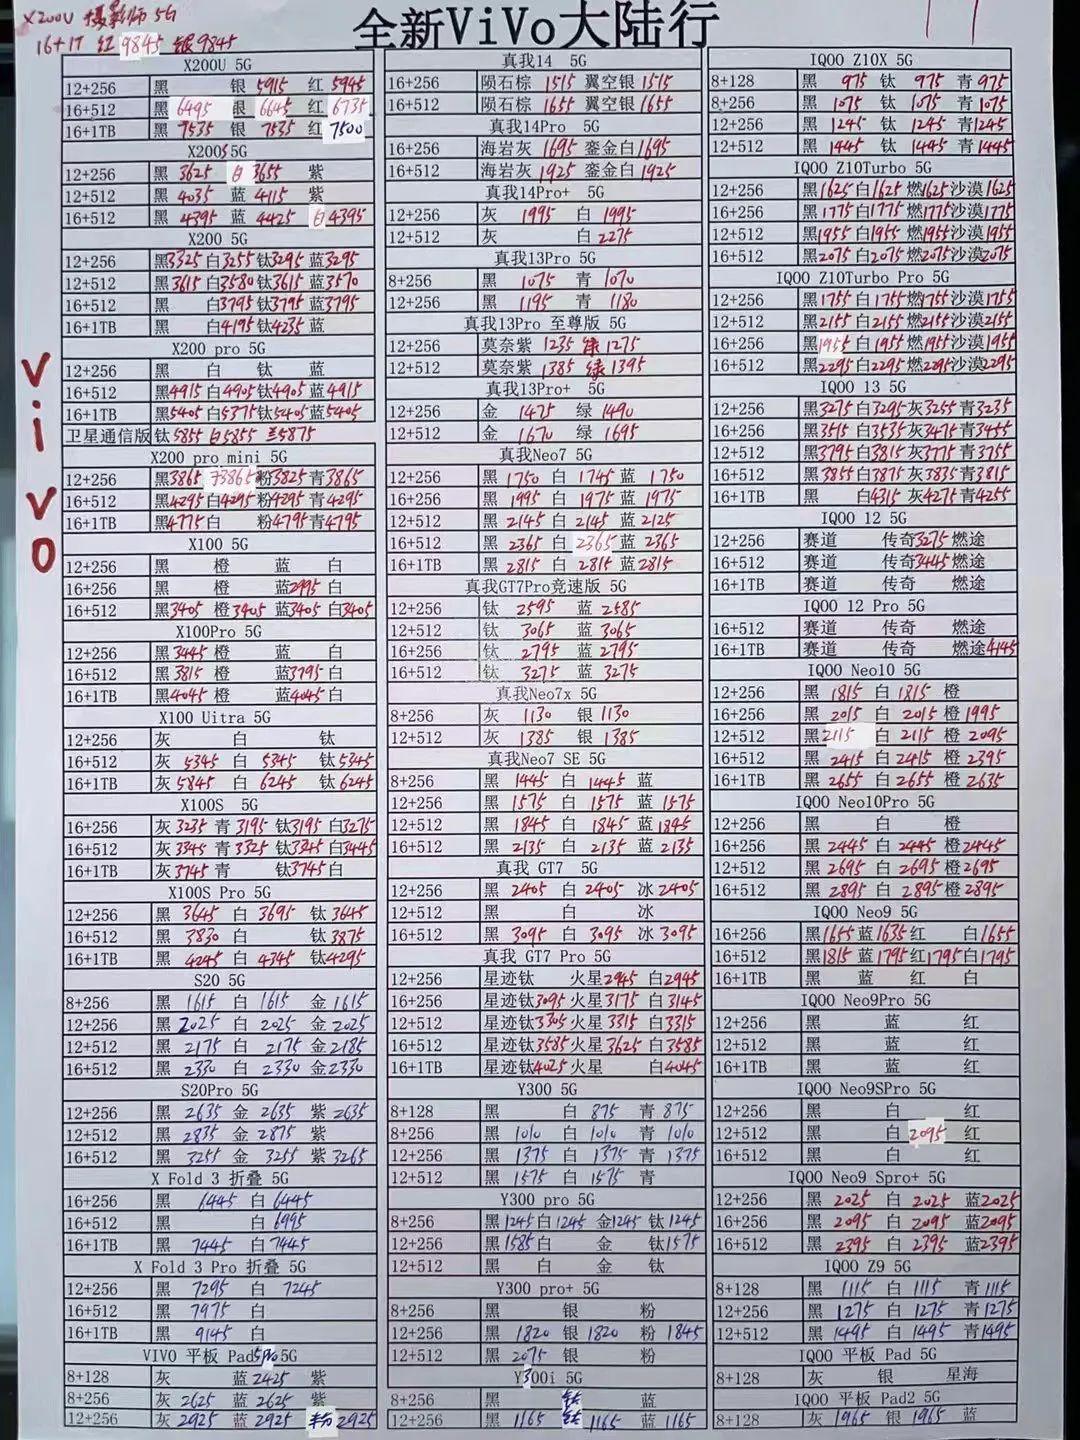 X200U 摄影师 5G
16+1T 红 9845 银 9845
全新ViVo大陆行
vivo
X200U 5G
12+256 黑 银 5915 红 5945
16+512 黑 6495 银 6645 红 6735
16+1TB 黑 7535 银 7535 红 7500
X200S 5G
12+256 黑 3625 白 3655 紫
12+512 黑 4035 蓝 4115 紫
16+512 黑 4395 蓝 4425 白 4395
X200 5G
12+256 黑3325 白3255 钛3295 蓝3295
12+512 黑3615 白3580 钛3615 蓝3570
16+512 黑 白3795 钛3795 蓝3795
16+1TB 黑 白4195 钛4235 蓝
X200 pro 5G
12+256 黑 白 钛 蓝
16+512 黑4915 白4905 钛4905 蓝4915
16+1TB 黑5405 白5375 钛5405 蓝5405
卫星通信版 钛5855 白5855 兰5875
X200 pro mini 5G
12+256 黑3865 3865 粉3825 青3865
16+512 黑4295 白4295 粉4295 青4295
16+1TB 黑4775 白 粉4795 青4795
X100 5G
12+256 黑 橙 蓝 白
16+256 黑 橙 蓝2995 白
16+512 黑3405 橙3405 蓝3405 白3405
X100Pro 5G
12+256 黑3445 橙 蓝 白
16+512 黑3815 橙 蓝3795 白
16+1TB 黑4045 橙 蓝4045 白
X100 Uitra 5G
12+256 灰 白 钛
16+512 灰 5345 白 5345 钛 5345
16+1TB 灰 5845 白 6245 钛 6245
X100S 5G
16+256 灰 3235 青 3195 钛3195 白3275
16+512 灰 3345 青 3325 钛3345 白3445
16+1TB 灰3745 青 钛3745 白
X100S Pro 5G
12+256 黑 3645 白 3695 钛 3645
16+512 黑 3830 白 钛 3875
16+1TB 黑 4245 白 4345 钛4295
S20 5G
8+256 黑 1615 白 1615 金 1615
12+256 黑 2025 白 2025 金 2025
12+512 黑 2175 白 2175 金 2185
16+512 黑 2330 白 2330 金 2330
S20Pro 5G
12+256 黑 2635 金 2635 紫 2635
12+512 黑 2835 金 2875 紫
16+512 黑 3255 金 3255 紫 3265
X Fold 3 折叠 5G
16+256 黑 6445 白 6445
16+512 黑 白 6995
16+1TB 黑 7445 白 7445
X Fold 3 Pro 折叠 5G
12+256 黑 7295 白 7245
16+512 黑 7975 白
16+1TB 黑 9145 白
VIVO 平板 Pad5Pro 5G
8+128 灰 蓝 2425 紫
8+256 灰 2625 蓝 2625 紫
12+256 灰 2925 蓝 2925 2925
真我14 5G
16+256 陨石棕 1515 翼空银 1515
16+512 陨石棕 1655 翼空银 1655
真我14Pro 5G
16+256 海岩灰 1695 銮金白 1695
16+512 海岩灰 1925 銮金白 1925
真我14Pro+ 5G
12+256 灰 1995 白 1995
12+512 灰 白 2275
真我13Pro 5G
8+256 黑 1075 青 1070
12+256 黑 1195 青 1180
真我13Pro 至尊版 5G
12+256 莫奈紫 1235 绿 1275
12+512 莫奈紫 1385 绿 1395
真我13Pro+ 5G
12+256 金 1475 绿 1490
12+512 金 1670 绿 1695
真我Neo7 5G
12+256 黑 1750 白 1745 蓝 1750
16+256 黑 1995 白 1975 蓝 1975
12+512 黑 2145 白 2145 蓝 2125
16+512 黑 2365 白 2365 蓝 2365
16+1TB 黑 2815 白 2815 蓝 2815
真我GT7Pro竞速版 5G
12+256 钛 2595 蓝 2585
12+512 钛 3065 蓝 3065
16+256 钛 2795 蓝 2795
16+512 钛 3275 蓝 3275
真我Neo7x 5G
8+256 灰 1130 银 1130
12+512 灰 1385 银 1385
真我Neo7 SE 5G
8+256 黑 1445 白 1445 蓝
12+256 黑 1575 白 1575 蓝 1575
12+512 黑 1845 白 1845 蓝 1845
16+512 黑 2135 白 2135 蓝 2135
真我 GT7 5G
12+256 黑 2405 白 2405 冰 2405
12+512 黑 白 冰
16+512 黑 3095 白 3095 冰 3095
真我 GT7 Pro 5G
12+256 星迹钛 火星2945 白2945
16+256 星迹钛3095 火星3175 白3145
12+512 星迹钛3305 火星3315 白3315
16+512 星迹钛3585 火星3625 白3585
16+1TB 星迹钛4025 火星 白4045
Y300 5G
8+128 黑 白 875 青 875
8+256 黑 1010 白 1010 青 1010
12+256 黑 1375 白 1375 青 1375
12+512 黑 1575 白 1575 青
Y300 pro 5G
8+256 黑1245 白1245 金1245 钛1245
12+256 黑1585 白 金 钛1575
12+512 黑 白 金 钛
Y300 pro+ 5G
8+256 黑 银 粉
12+256 黑 1820 银 1820 粉 1845
12+512 黑 2075 银 粉
Y300i 5G
8+256 黑 钛 蓝
12+256 黑 1165 钛 1165 蓝 1165
IQOO Z10X 5G
8+128 黑 975 钛 975 青 975
8+256 黑 1075 钛 1075 青 1075
12+256 黑 1245 钛 1245 青 1245
12+512 黑 1445 钛 1445 青 1445
IQOO Z10Turbo 5G
12+256 黑1625 白1625 燃1625 沙漠1625
16+256 黑1775 白1775 燃1775 沙漠1775
12+512 黑1955 白1955 燃1955 沙漠1955
16+512 黑2075 白2075 燃2075 沙漠2075
IQOO Z10Turbo Pro 5G
12+256 黑1755 白1755 燃1755 沙漠1755
12+512 黑2155 白2155 燃2155 沙漠2155
16+256 黑1955 白1955 燃1955 沙漠1955
16+512 黑2295 白2295 燃2295 沙漠2295
IQOO 13 5G
12+256 黑3275 白3295 灰3255 青3235
16+256 黑3515 白3535 灰3475 青3455
12+512 黑3795 白3815 灰3775 青3755
16+512 黑3855 白3875 灰3835 青3815
16+1TB 黑 白4315 灰4275 青4255
IQOO 12 5G
12+256 赛道 传奇3275 燃途
16+512 赛道 传奇3445 燃途
16+1TB 赛道 传奇 燃途
IQOO 12 Pro 5G
16+512 赛道 传奇 燃途
16+1TB 赛道 传奇 燃途4145
IQOO Neo10 5G
12+256 黑 1815 白 1815 橙
16+256 黑 2015 白 2015 橙 1995
12+512 黑 2115 白 2115 橙 2095
16+512 黑 2415 白 2415 橙 2395
16+1TB 黑 2655 白 2655 橙 2635
IQOO Neo10Pro 5G
12+256 黑 白 橙
16+256 黑 2445 白 2445 橙 2445
12+512 黑 2695 白 2695 橙 2695
16+512 黑 2895 白 2895 橙 2895
IQOO Neo9 5G
16+256 黑1655 蓝1635 红 白1655
16+512 黑1815 蓝1795 红1795 白1795
16+1TB 黑 蓝 红 白
IQOO Neo9Pro 5G
12+256 黑 蓝 红
12+512 黑 蓝 红
16+1TB 黑 蓝 红
IQOO Neo9SPro 5G
12+256 黑 白 红
12+512 黑 白 2095 红
16+512 黑 白 红
IQOO Neo9 Spro+ 5G
12+256 黑 2025 白 2025 蓝2025
16+256 黑 2095 白 2095 蓝2095
16+512 黑 2395 白 2395 蓝2395
IQOO Z9 5G
8+128 黑 1115 白 1115 青 1115
12+256 黑 1275 白 1275 青 1275
12+512 黑 1495 白 1495 青 1495
IQOO 平板 Pad 5G
8+128 灰 银 星海
IQOO 平板 Pad2 5G
8+128 灰 1965 银 1965 蓝